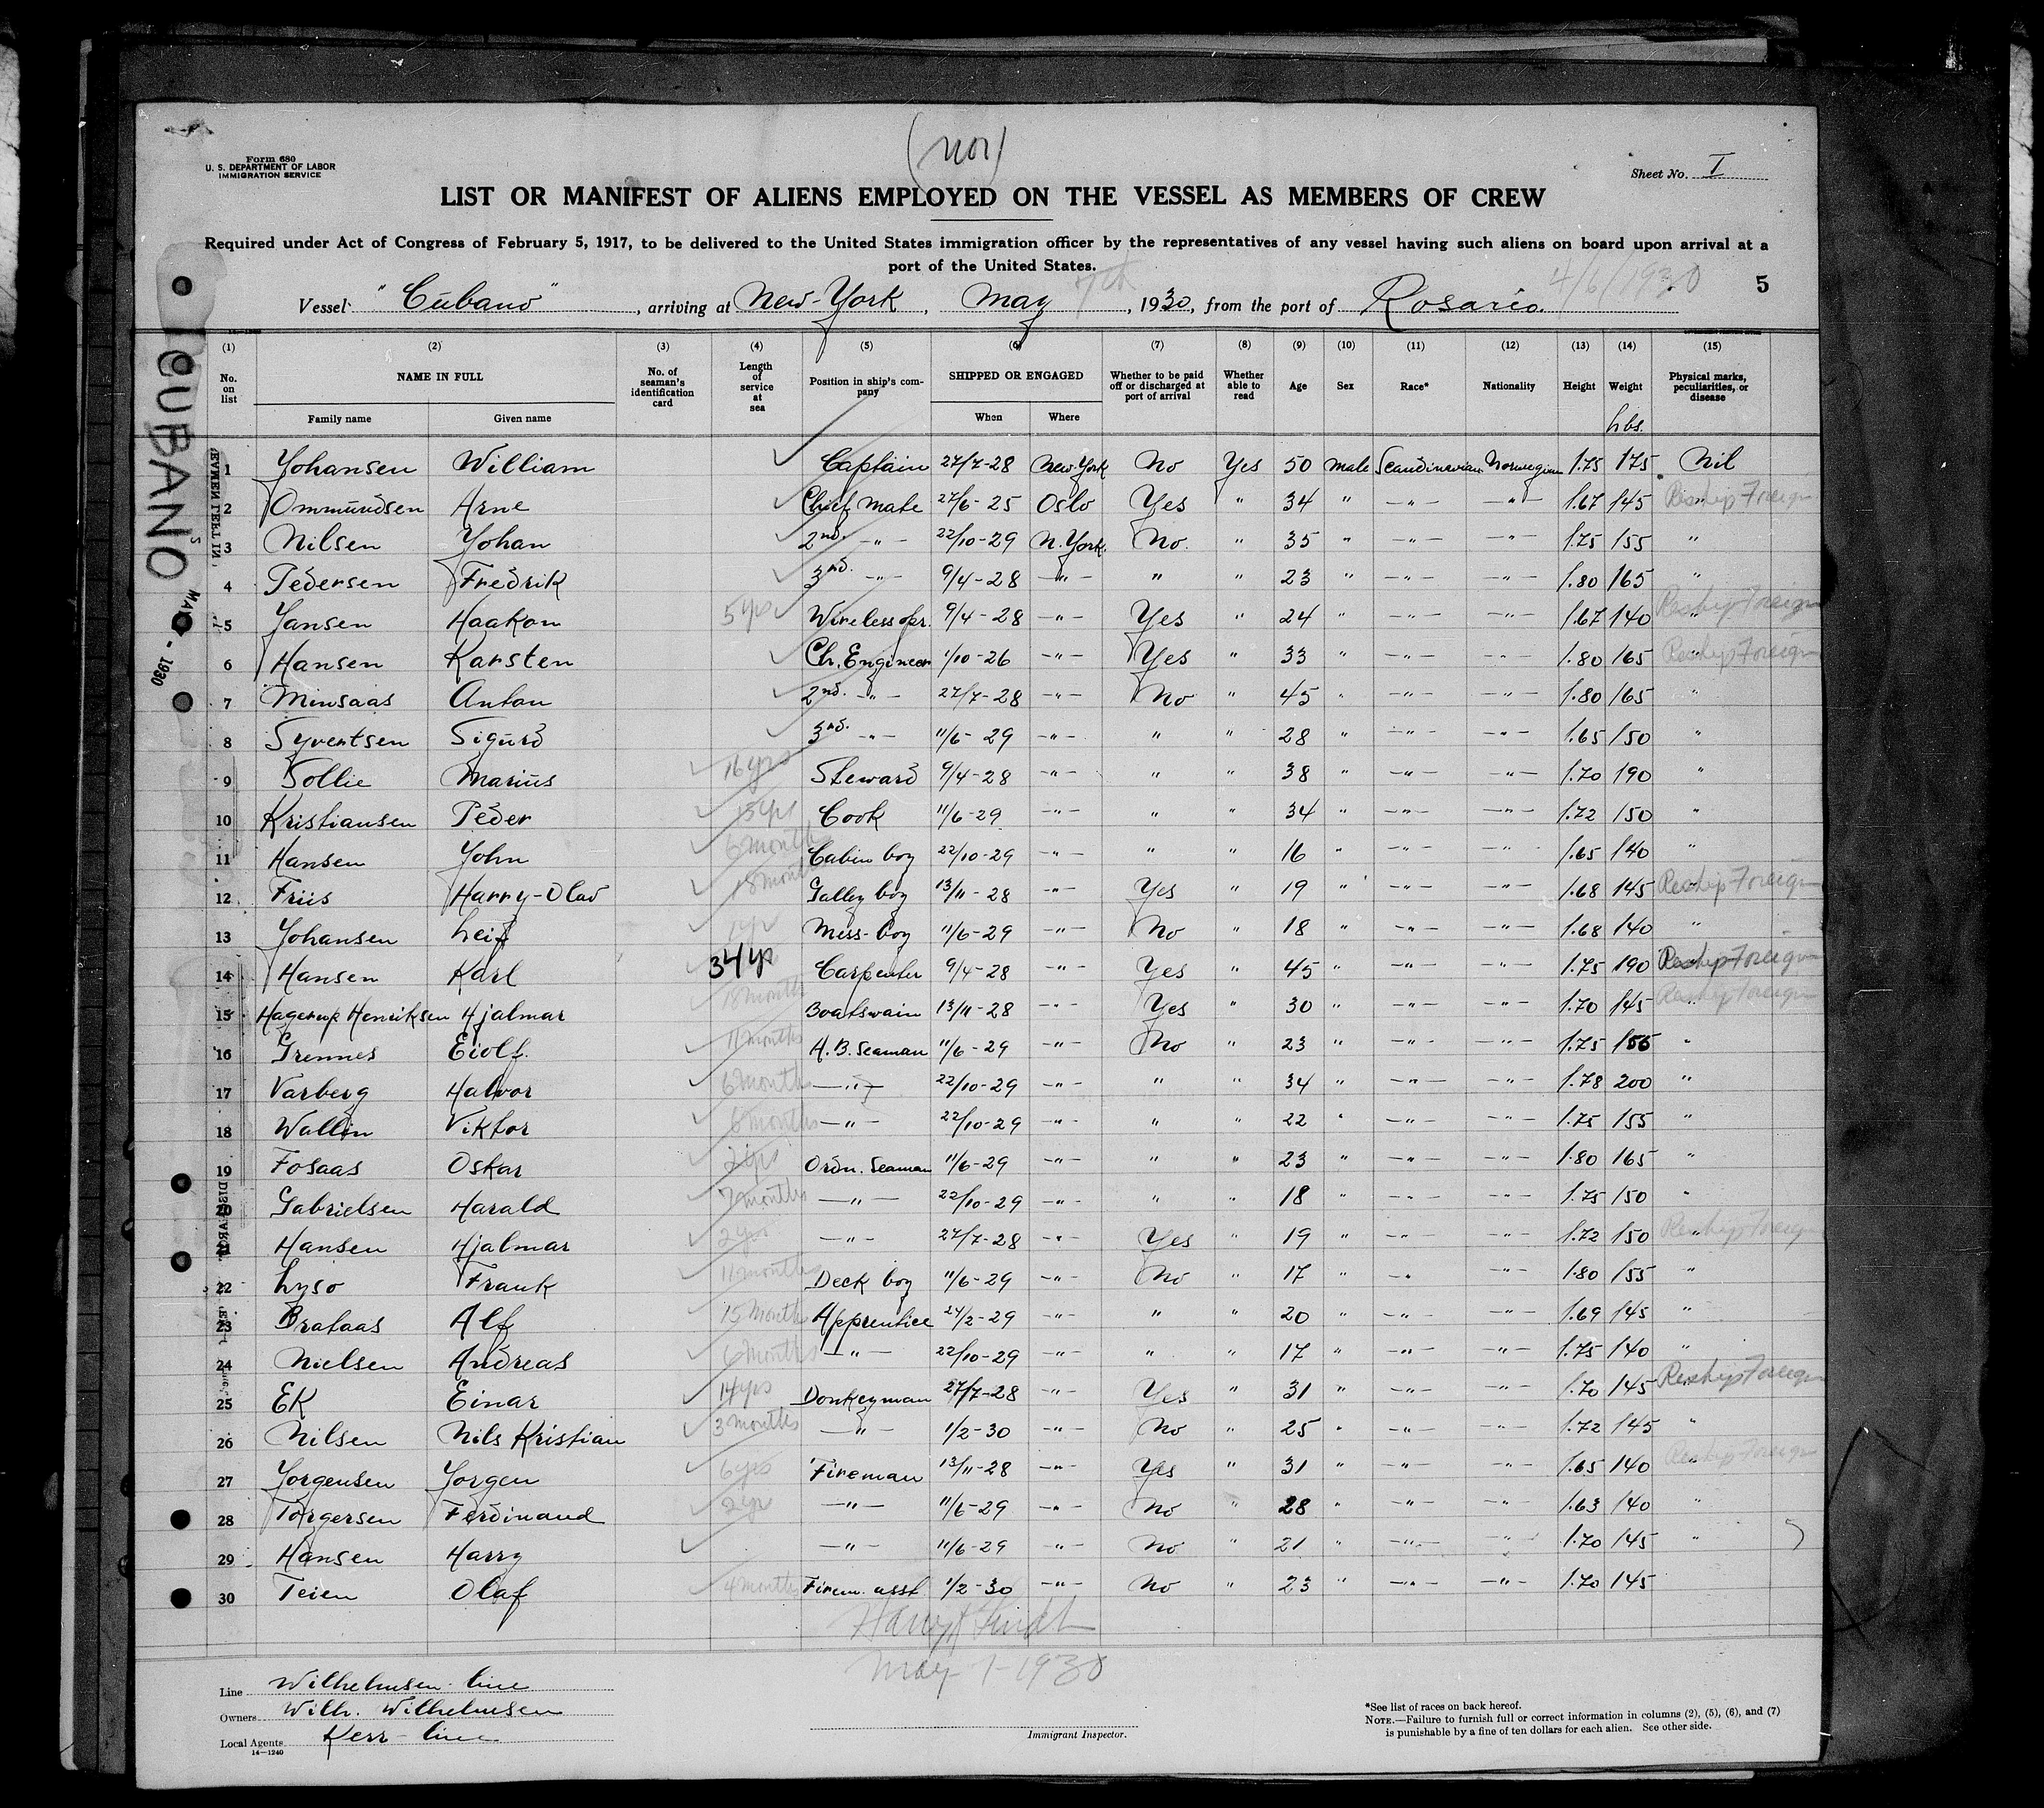 (nor)
Form 680
U. S. DEPARTMENT OF LABOR
IMMIGRATION SERVICE
Sheet No. I
LIST OR MANIFEST OF ALIENS EMPLOYED ON THE VESSEL AS MEMBERS OF CREW
Required under Act of Congress of February 5, 1917, to be delivered to the United States immigration officer by the representatives of any vessel having such aliens on board upon arrival at a
port of the United States.
4/6/1930
5
Vessel "Cubano", arriving at New-York, May 7th, 1930, from the port of Rosario.
CUBANO
MAY - 1930
(1) (2) (3) (4) (5) (6) (7) (8) (9) (10) (11) (12) (13) (14) (15)
No. on list NAME IN FULL No. of seaman's identification card Length of service at sea Position in ship's company SHIPPED OR ENGAGED Whether to be paid off or discharged at port of arrival Whether able to read Age Sex Race* Nationality Height Weight Physical marks, peculiarities, or disease
Family name Given name When Where lbs.
1 Johansen William Captain 27/7-28 New-York No Yes 50 male Scandinavian Norwegian 1.75 175 Nil
2 Ommundsen Arne Chief Mate 27/6-25 Oslo Yes " 34 " -"- -"- 1.67 145 Reship Foreign
3 Nilsen Johan 2nd. -"- 22/10-29 N.York. No. " 35 " -"- -"- 1.75 155 "
4 Pedersen Fredrik 3nd. -"- 9/4-28 -"- " " 23 " -"- -"- 1.80 165 "
5 Jansen Haakon 5 yrs Wireless opr. 9/4-28 -"- Yes " 24 " -"- -"- 1.67 140 Reship Foreign
6 Hansen Karsten Ch. Engineer 1/10-26 -"- Yes " 33 " -"- -"- 1.80 165 Reship Foreign
7 Minsaas Anton 2nd. -"- 27/7-28 -"- No " 45 " -"- -"- 1.80 165 "
8 Syvertsen Sigurd 3nd. -"- 11/6-29 -"- " " 28 " -"- -"- 1.65 150 "
9 Sollie Marius 16 yrs Steward 9/4-28 -"- " " 38 " -"- -"- 1.70 190 "
10 Kristiansen Peder 15 yrs Cook 11/6-29 -"- " " 34 " -"- -"- 1.72 150 "
11 Hansen John 6 months Cabin boy 22/10-29 -"- " " 16 " -"- -"- 1.65 140 "
12 Friis Harry-Olav 18 months Galley boy 13/11-28 -"- Yes " 19 " -"- -"- 1.68 145 Reship Foreign
13 Johansen Leif 1 yr Mess-boy 11/6-29 -"- No " 18 " -"- -"- 1.68 140 "
14 Hansen Karl 34 yrs Carpenter 9/4-28 -"- Yes " 45 " -"- -"- 1.75 190 Reship Foreign
15 Hagerup Henriksen Hjalmar 18 months Boatswain 13/11-28 -"- Yes " 30 " -"- -"- 1.70 145 Reship Foreign
16 Grennes Eiolf. 11 months A.B. Seaman 11/6-29 -"- No " 23 " -"- -"- 1.75 155 "
17 Varberg Halvor 6 months -"- 22/10-29 -"- " " 34 " -"- -"- 1.78 200 "
18 Wallin Viktor 6 months -"- 22/10-29 -"- " " 22 " -"- -"- 1.75 155 "
19 Fosaas Oskar 2 yrs Ordn. Seaman 11/6-29 -"- " " 23 " -"- -"- 1.80 165 "
20 Gabrielsen Harald 7 months -"- 22/10-29 -"- " " 18 " -"- -"- 1.75 150 "
21 Hansen Hjalmar 2 yrs -"- 27/7-28 -"- Yes " 19 " -"- -"- 1.72 150 Reship Foreign
22 Lyso Frank 11 months Deck boy 11/6-29 -"- No " 17 " -"- -"- 1.80 155 "
23 Brataas Alf 15 months Apprentice 24/2-29 -"- " " 20 " -"- -"- 1.69 145 "
24 Nielsen Andreas 6 months -"- 22/10-29 -"- " " 17 " -"- -"- 1.75 140 "
25 Ek Einar 14 yrs Donkeyman 27/7-28 -"- Yes " 31 " -"- -"- 1.70 145 Reship Foreign
26 Nilsen Nils Kristian 3 months -"- 1/2-30 -"- No " 25 " -"- -"- 1.72 145 "
27 Jorgensen Jorgen 6 yrs Fireman 13/11-28 -"- Yes " 31 " -"- -"- 1.65 140 Reship Foreign
28 Torgersen Ferdinand 2 yr -"- 11/6-29 -"- No " 28 " -"- -"- 1.63 140 "
29 Hansen Harry -"- 11/6-29 -"- No " 21 " -"- -"- 1.70 145 "
30 Teien Olaf 4 months Firem. asst 1/2-30 -"- No " 23 " -"- -"- 1.70 145
May 7-1930
Line Wilhelmsen-line
Owners Wilh. Wilhelmsen
Local Agents Kerr-line
14-1240
Immigrant Inspector.
*See list of races on back hereof.
NOTE.—Failure to furnish full or correct information in columns (2), (5), (6), and (7)
is punishable by a fine of ten dollars for each alien. See other side.